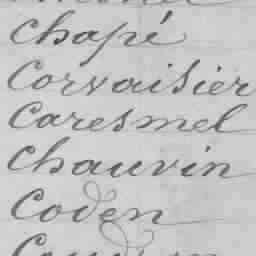 Chapé
Corvaisier
Caresmel
Chauvin
Coden